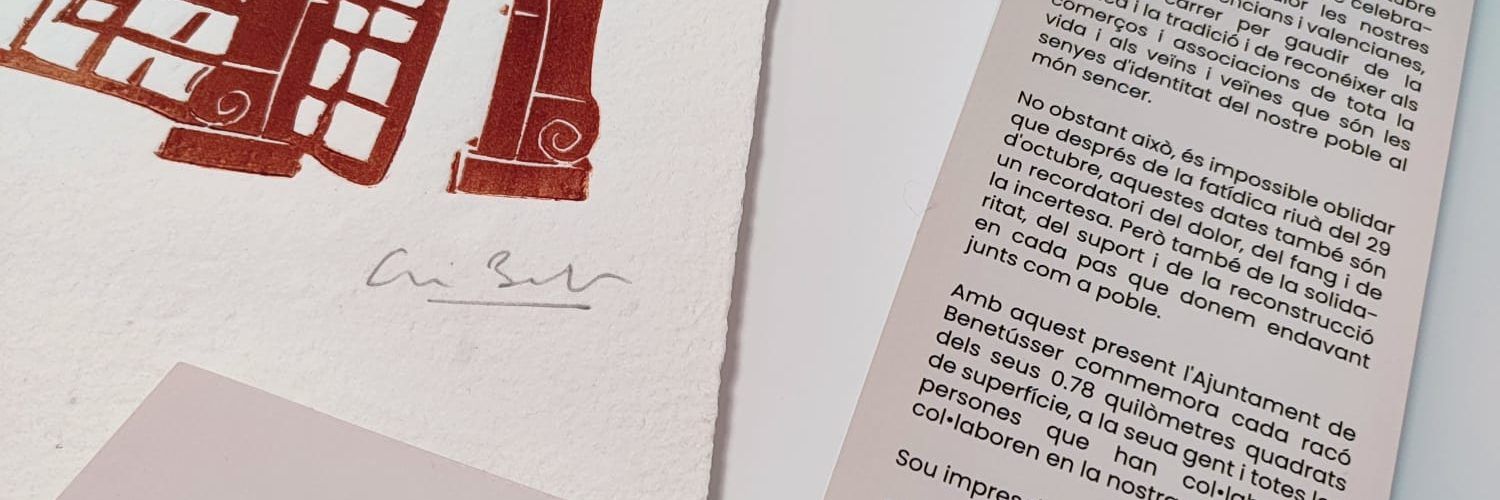 celebra-
lor les nostres
encians i valencianes,
carrer per gaudir de la
i la tradició i de reconéixer als
comerços i associacions de tota la
vida i als veïns i veïnes que són les
senyes d'identitat del nostre poble al
món sencer.
No obstant això, és impossible oblidar
que després de la fatídica riuà del 29
d'octubre, aquestes dates també són
un recordatori del dolor, del fang i de
la incertesa. Però també de la solida-
ritat, del suport i de la reconstrucció
en cada pas que donem endavant
junts com a poble.
Amb aquest present l'Ajuntament de
Benetússer commemora cada racó
dels seus 0.78 quilòmetres quadrats
de superfície, a la seua gent i totes
persones que han
col•laboren en la nostra
Sou